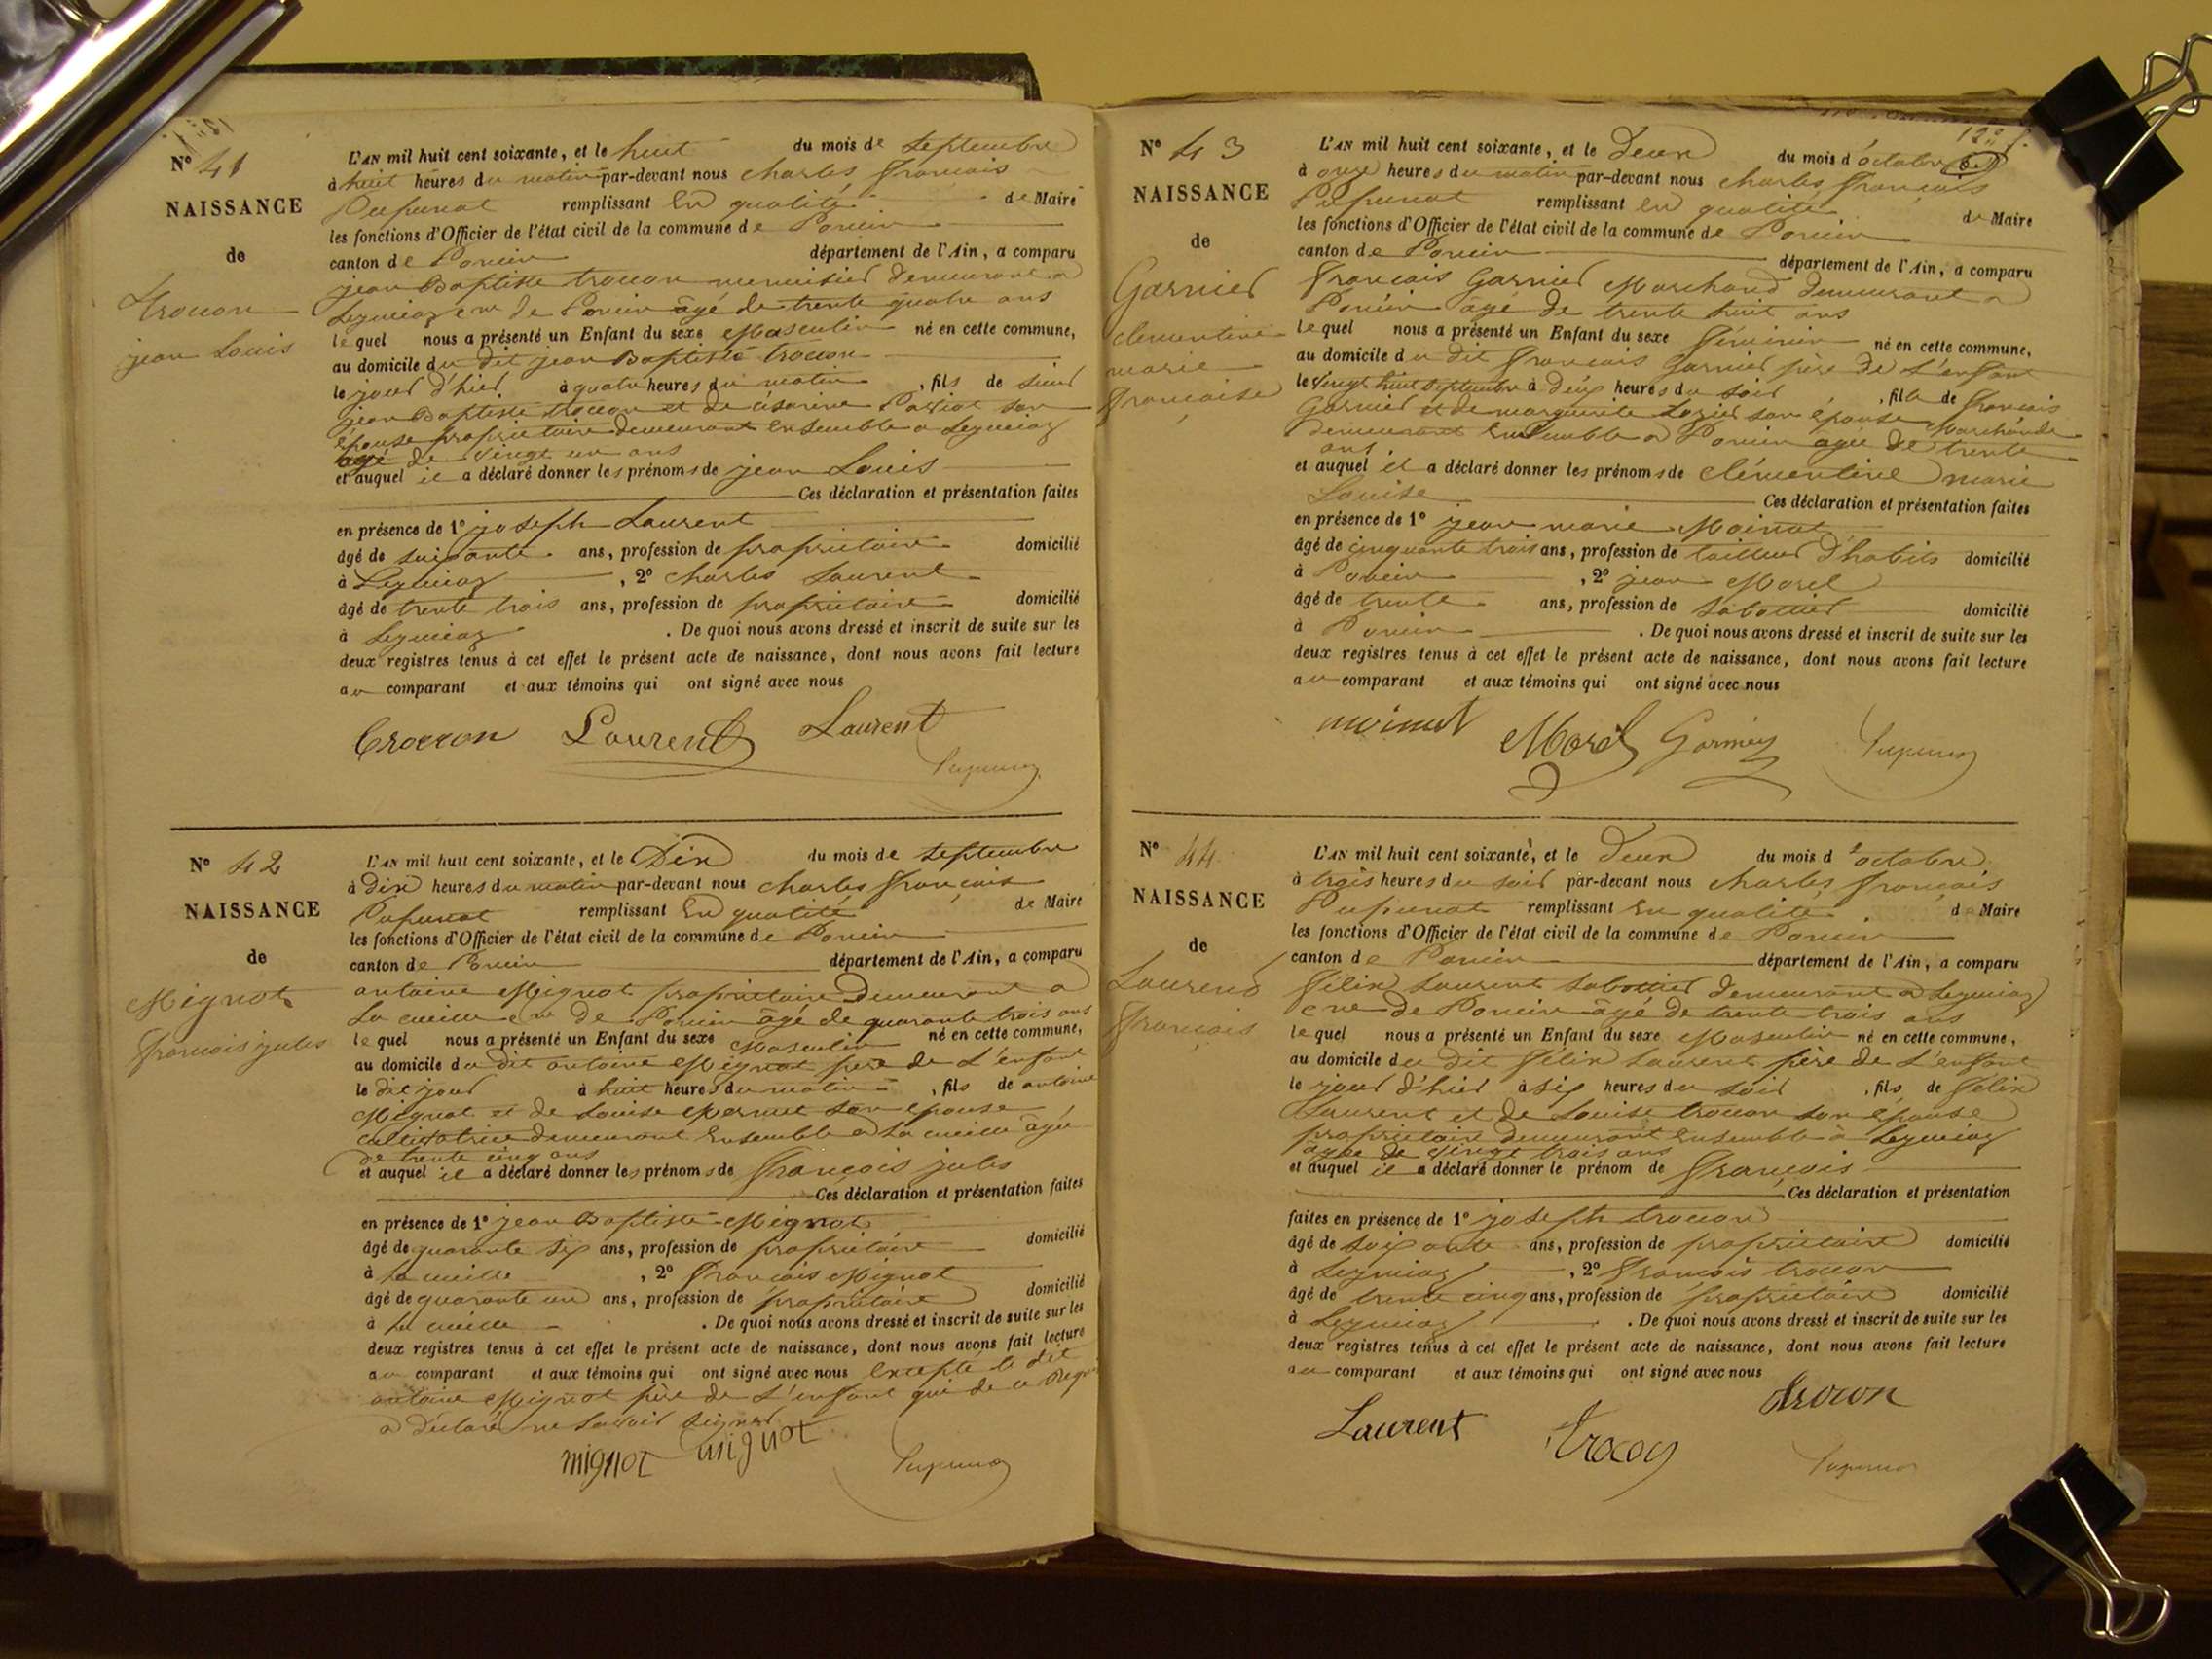 N° 41
NAISSANCE
de
Trocon
jean Louis
L'AN mil huit cent soixante, et le huit du mois de Septembre
à huit heures du matin par-devant nous charles françois
Pupunat remplissant En qualité de Maire
les fonctions d'Officier de l'état civil de la commune de Poncin
canton de Poncin département de l'Ain, a comparu
jean Baptiste trocon menuisier demeurant a
Leymiaz cne de Poncin âgé de trente quatre ans
lequel nous a présenté un Enfant du sexe Masculin né en cette commune,
au domicile du dit jean Baptiste trocon
le jour d'hier à quatre heures du matin, fils de sieur
jean Baptiste trocon et de césarine son
épouse propriétaire demeurant Ensemble a Leymiaz
agé de vingt un ans
et auquel il a déclaré donner les prénoms de jean Louis
Ces déclaration et présentation faites
en présence de 1° joseph Laurent
âgé de soixante ans, profession de propriétaire domicilié
à Leymiaz, 2° Charles Laurent
âgé de trente trois ans, profession de propriétaire domicilié
à Leymiaz. De quoi nous avons dressé et inscrit de suite sur les
deux registres tenus à cet effet le présent acte de naissance, dont nous avons fait lecture
au comparant et aux témoins qui ont signé avec nous
Trocon Laurent Laurent
Pupunat
N° 42
NAISSANCE
de
Mignot
françois jules
L'AN mil huit cent soixante, et le Dix du mois de Septembre
à Dix heures du matin par-devant nous charles françois
Pupunat remplissant En qualité de Maire
les fonctions d'Officier de l'état civil de la commune de Poncin
canton de Poncin département de l'Ain, a comparu
antoine Mignot propriétaire Demeurant a
La cueille cne de Poncin âgé de quarante trois ans
lequel nous a présenté un Enfant du sexe Masculin né en cette commune,
au domicile du dit antoine Mignot père de L'enfant
le dit jour à huit heures du matin, fils de antoine
Mignot et de Louise son épouse
cultivatrice demeurant Ensemble a La cueille âgée
de trente cinq ans
et auquel il a déclaré donner les prénoms de françois jules
Ces déclaration et présentation faites
en présence de 1° jean Baptiste Mignot
âgé de quarante six ans, profession de propriétaire domicilié
à La cueille, 2° françois Mignot
âgé de quarante un ans, profession de propriétaire domicilié
à La cueille. De quoi nous avons dressé et inscrit de suite sur les
deux registres tenus à cet effet le présent acte de naissance, dont nous avons fait lecture
au comparant et aux témoins qui ont signé avec nous Excepté le dit
antoine Mignot père de L'enfant qui de ce Requis
a déclaré ne savoir signer
mignot mignot Pupunat
N° 43
NAISSANCE
de
Garnier
clementine
marie
françoise
L'AN mil huit cent soixante, et le Deux du mois d'octobre
à onze heures du matin par-devant nous charles françois
Pupunat remplissant En qualité de Maire
les fonctions d'Officier de l'état civil de la commune de Poncin
canton de Poncin département de l'Ain, a comparu
françois Garnier Marchand demeurant a
Poncin âgé de trente huit ans
lequel nous a présenté un Enfant du sexe féminin né en cette commune,
au domicile du dit françois Garnier père de L'enfant
le Vingt huit Septembre à deux heures du soir, fille de françois
Garnier et de marguerite Lozier son épouse Marchande
demeurant Ensemble a Poncin agée de trente
ans
et auquel il a déclaré donner les prénoms de clémentine marie
Louise Ces déclaration et présentation faites
en présence de 1° jean marie Moinat
âgé de cinquante trois ans, profession de tailleur d'habits domicilié
à Poncin, 2° jean Morel
âgé de trente ans, profession de Sabottier domicilié
à Poncin. De quoi nous avons dressé et inscrit de suite sur les
deux registres tenus à cet effet le présent acte de naissance, dont nous avons fait lecture
au comparant et aux témoins qui ont signé avec nous
moinat Morel Garnier Pupunat
N° 44
NAISSANCE
de
Laurent
françois
L'AN mil huit cent soixante, et le Deux du mois d'octobre
à trois heures du soir par-devant nous charles françois
Pupunat remplissant En qualité de Maire
les fonctions d'Officier de l'état civil de la commune de Poncin
canton de Poncin département de l'Ain, a comparu
félix Laurent Sabottier demeurant a Leymiaz
cne de Poncin âgé de trente trois ans
lequel nous a présenté un Enfant du sexe Masculin né en cette commune,
au domicile du dit félix Laurent père de L'enfant
le jour d'hier à six heures du soir, fils de félix
Laurent et de Louise trocon son épouse
propriétaire demeurant Ensemble à Leymiaz
âgée de vingt trois ans
et auquel il a déclaré donner le prénom de françois
Ces déclaration et présentation
faites en présence de 1° joseph trocon
âgé de soixante ans, profession de propriétaire domicilié
à Leymiaz, 2° françois trocon
âgé de trente cinq ans, profession de propriétaire domicilié
à Leymiaz. De quoi nous avons dressé et inscrit de suite sur les
deux registres tenus à cet effet le présent acte de naissance, dont nous avons fait lecture
au comparant et aux témoins qui ont signé avec nous
Laurent Trocon Trocon
Pupunat